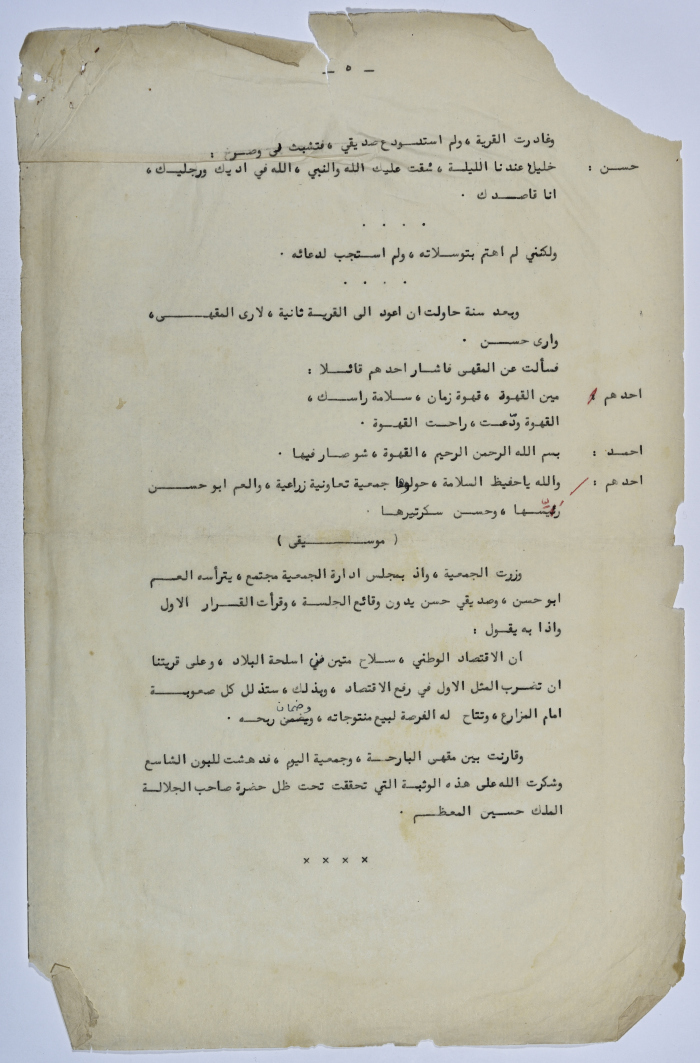 — ٥ —
وغادرت القرية ، ولم استدع صديقي ، فتشبث في وصرخ :
حسن : خليك عندنا الليلة ، شقت عليك الله والنبي ، الله في اديك ورجليك ،
انا قاصدك
. . . .
ولكنني لم اهتم بتوسلاته ، ولم استجب لدعائه .
. . . .
وبعد سنة حاولت ان اعود الى القرية ثانية ، لارى المقهى ،
وارى حسن .
فسألت عن المقهى فاشار احدهم قائلا :
احدهم : مين القهوة ، قهوة زمان ، سلامة راسك ،
القهوة ودّعت ، راحت القهوة .
احمد : بسم الله الرحمن الرحيم ، القهوة ، شو صار فيها .
احدهم : والله ياحفيظ السلامة ، حولوها جمعية تعاونية زراعية ، والعم ابو حسن
ريّسها ، وحسن سكرتيرها .
( موسيقى )
وزرت الجمعية ، واذ بمجلس ادارة الجمعية مجتمع ، يترأسه العم
ابو حسن ، وصديقي حسن يدون وقائع الجلسة ، وقرأت القرار الاول
واذا به يقول :
ان الاقتصاد الوطني ، سلاح متين في اسلحة البلاد ، وعلى قريتنا
ان تضرب المثل الاول في رفع الاقتصاد ، وبذلك ، ستذلل كل صعوبة
امام المزارع ، وتتاح له الفرصة لبيع منتوجاته ، وضمان ربحه .
وقارنت بين مقهى البارحة ، وجمعية اليوم ، فدهشت للبون الشاسع
وشكرت الله على هذه الوثبة التي تحققت تحت ظل حضرة صاحب الجلالة
الملك حسين المعظم .
× × × ×